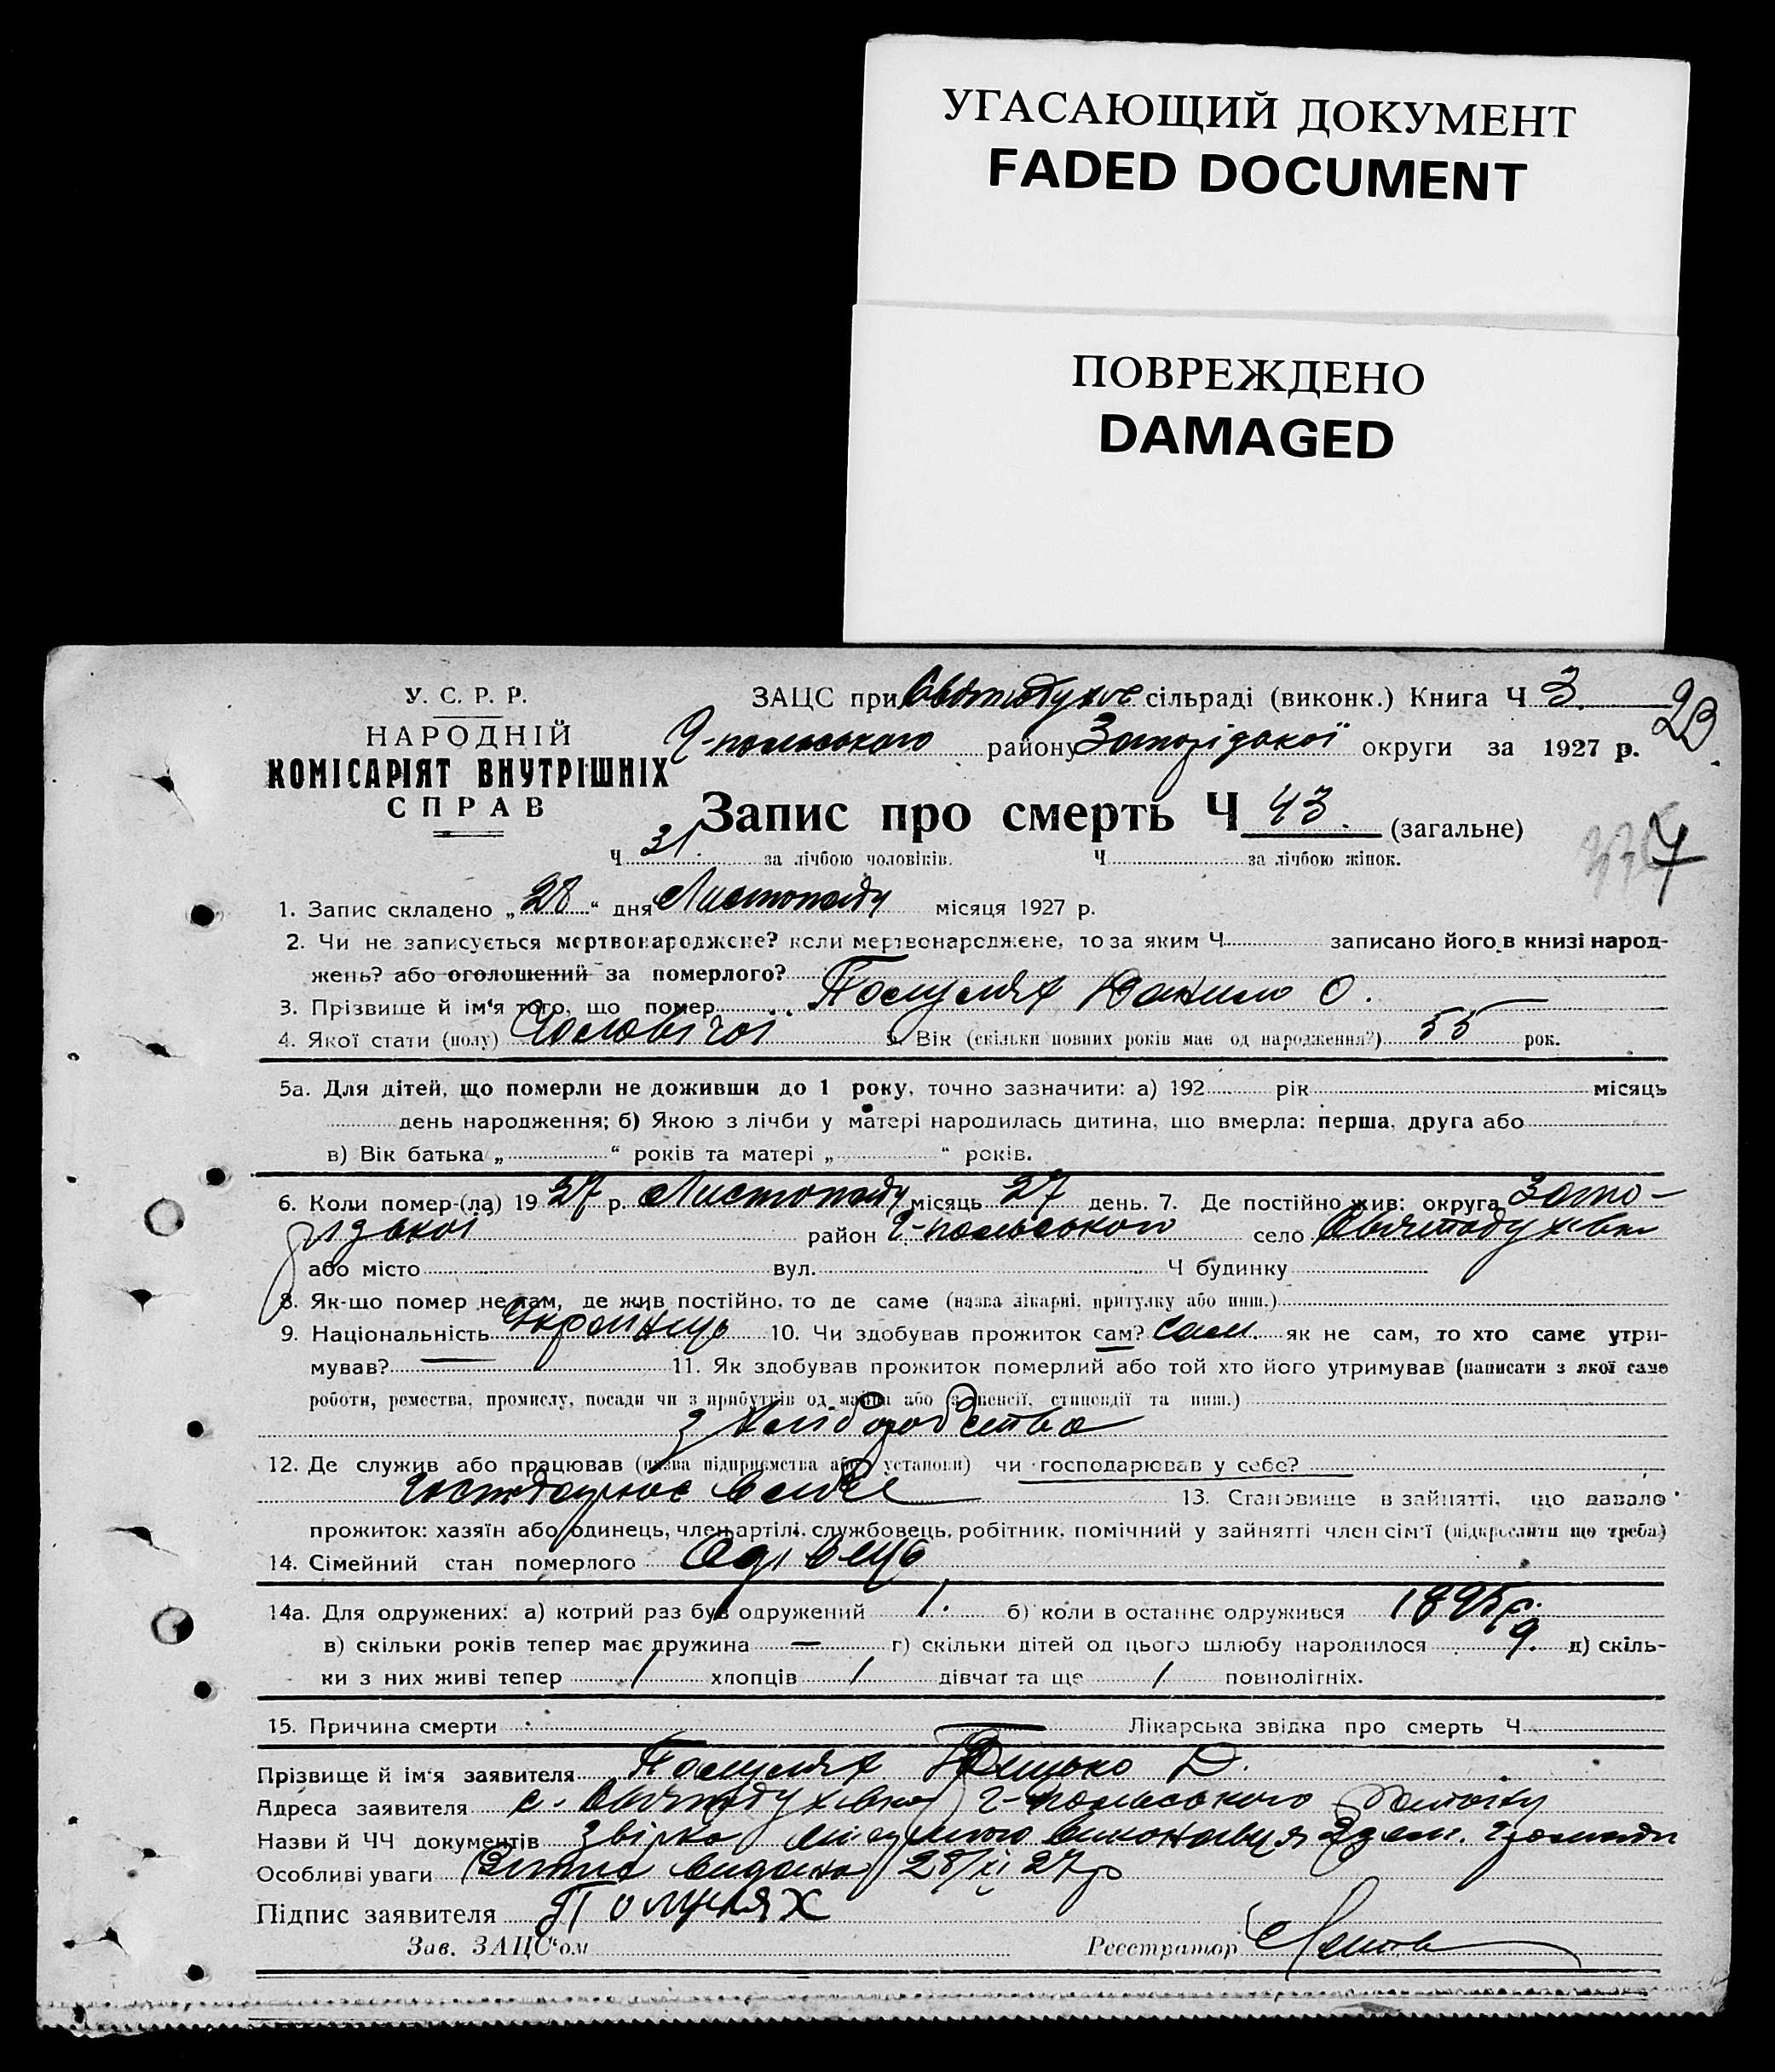 УГАСАЮЩИЙ ДОКУМЕНТ
FADED DOCUMENT
ПОВРЕЖДЕНО
DAMAGED
У. С. Р. Р.
НАРОДНІЙ
КОМІСАРІЯТ ВНУТРІШНІХ
СПРАВ
ЗАЦС при сільраді (виконк.) Книга Ч 3. 23
Г-польського району Запорізької округи за 1927 р.
Запис про смерть Ч 43. (загальне)
Ч 31. за лічбою чоловіків. Ч за лічбою жінок.
1. Запис складено „28“ дня Листопаду місяця 1927 р.
2. Чи не записується мертвонароджене? коли мертвонароджене, то за яким Ч записано його в книзі народ-
жень? або оголошений за померлого?
3. Прізвище й ім'я того, що помер Данило О.
4. Якої стати (полу) Чоловічої 5. Вік (скільки повних років має од народження?) 55 рок.
5а. Для дітей, що померли не доживши до 1 року, точно зазначити: а) 192 рік місяць
день народження; б) Якою з лічби у матері народилась дитина, що вмерла: перша, друга або
в) Вік батька „ “ років та матері „ “ років.
6. Коли помер-(ла) 19 27 р. Листопаду місяць 27 день. 7. Де постійно жив: округа Запо-
різької район Г-польського село Святодухівка
або місто вул. Ч будинку
8. Як-що помер не там, де жив постійно, то де саме (назва лікарні, притулку або инш.)
9. Національність Українець 10. Чи здобував прожиток сам? сам. як не сам, то хто саме утри-
мував? — 11. Як здобував прожиток померлий або той хто його утримував (написати з якої саме
роботи, ремества, промислу, посади чи з прибутків од майна або з пенсії, стипендії та инш.)
з хліборобства
12. Де служив або працював (назва підприємства або установи) чи господарював у себе?
господарює в себе 13. Становище в зайнятті, що давало
прожиток: хазяїн або одинець, член артілі, службовець, робітник, помічний у зайнятті член сім'ї (підкреслити що треба)
14. Сімейний стан померлого Вдівець
14а. Для одружених: а) котрий раз був одружений 1. б) коли в останнє одружився 1895 р.
в) скільки років тепер має дружина — г) скільки дітей од цього шлюбу народилося 9. д) скіль-
ки з них живі тепер 1 хлопців 1 дівчат та ще 1 повнолітніх.
15. Причина смерти Лікарська звідка про смерть Ч
Прізвище й ім'я заявителя Д.
Адреса заявителя с. Святодухівка Г-польського
Назви й ЧЧ документів звірка
Особливі уваги видана 28/XI 27 р
Підпис заявителя
Зав. ЗАЦС'ом Реєстратор